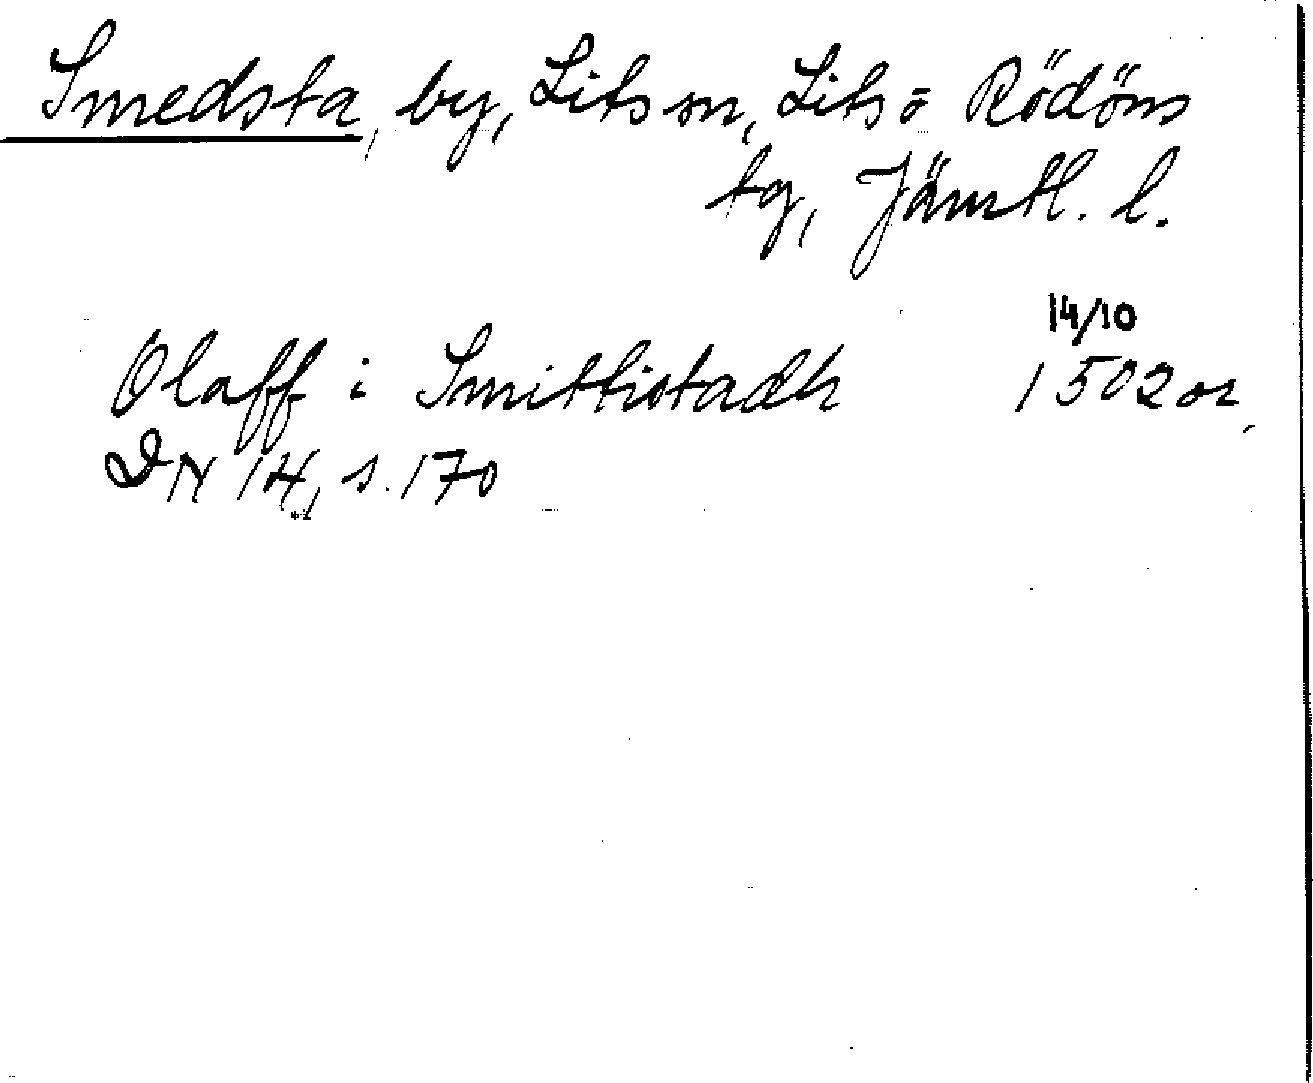 Smedsta, by, Lits sn, Lits o Rödöns
tg, Jämtl. l.
14/10
Olaff i Smittistadh 1502 or.
DN 14, s. 170